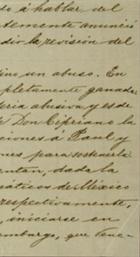 do á hablar del
temente anunció
dir la revisión del
ins un abuso. En
pletamente ganada
ria abusiva y es de
Don Cipriano la
ciones á Raul y
nes para sostenerla
entan, dada la
áticos de México
respectivamente,
iniciarse en
embargo, que tene-